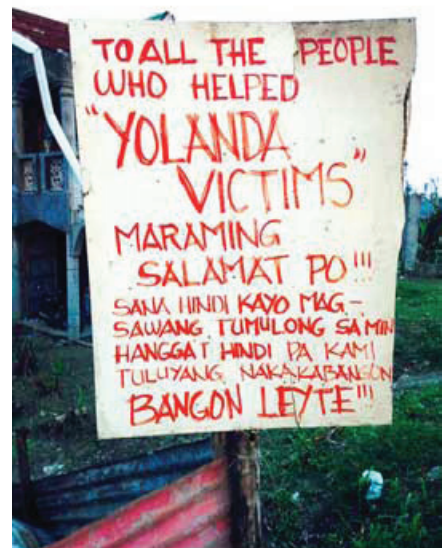 TO ALL THE PEOPLE
WHO HELPED
"YOLANDA
VICTIMS"
MARAMING
SALAMAT PO!!!
SANA HINDI KAYO MAG-
SAWANG TUMULONG SA MIN
HANGGAT HINDI PA KAMI
TULUYANG NAKAKABANGON
BANGON LEYTE!!!